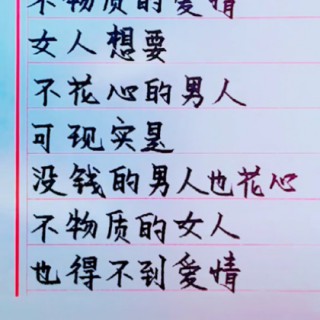 不物质的爱情
女人想要
不花心的男人
可现实是
没钱的男人也花心
不物质的女人
也得不到爱情